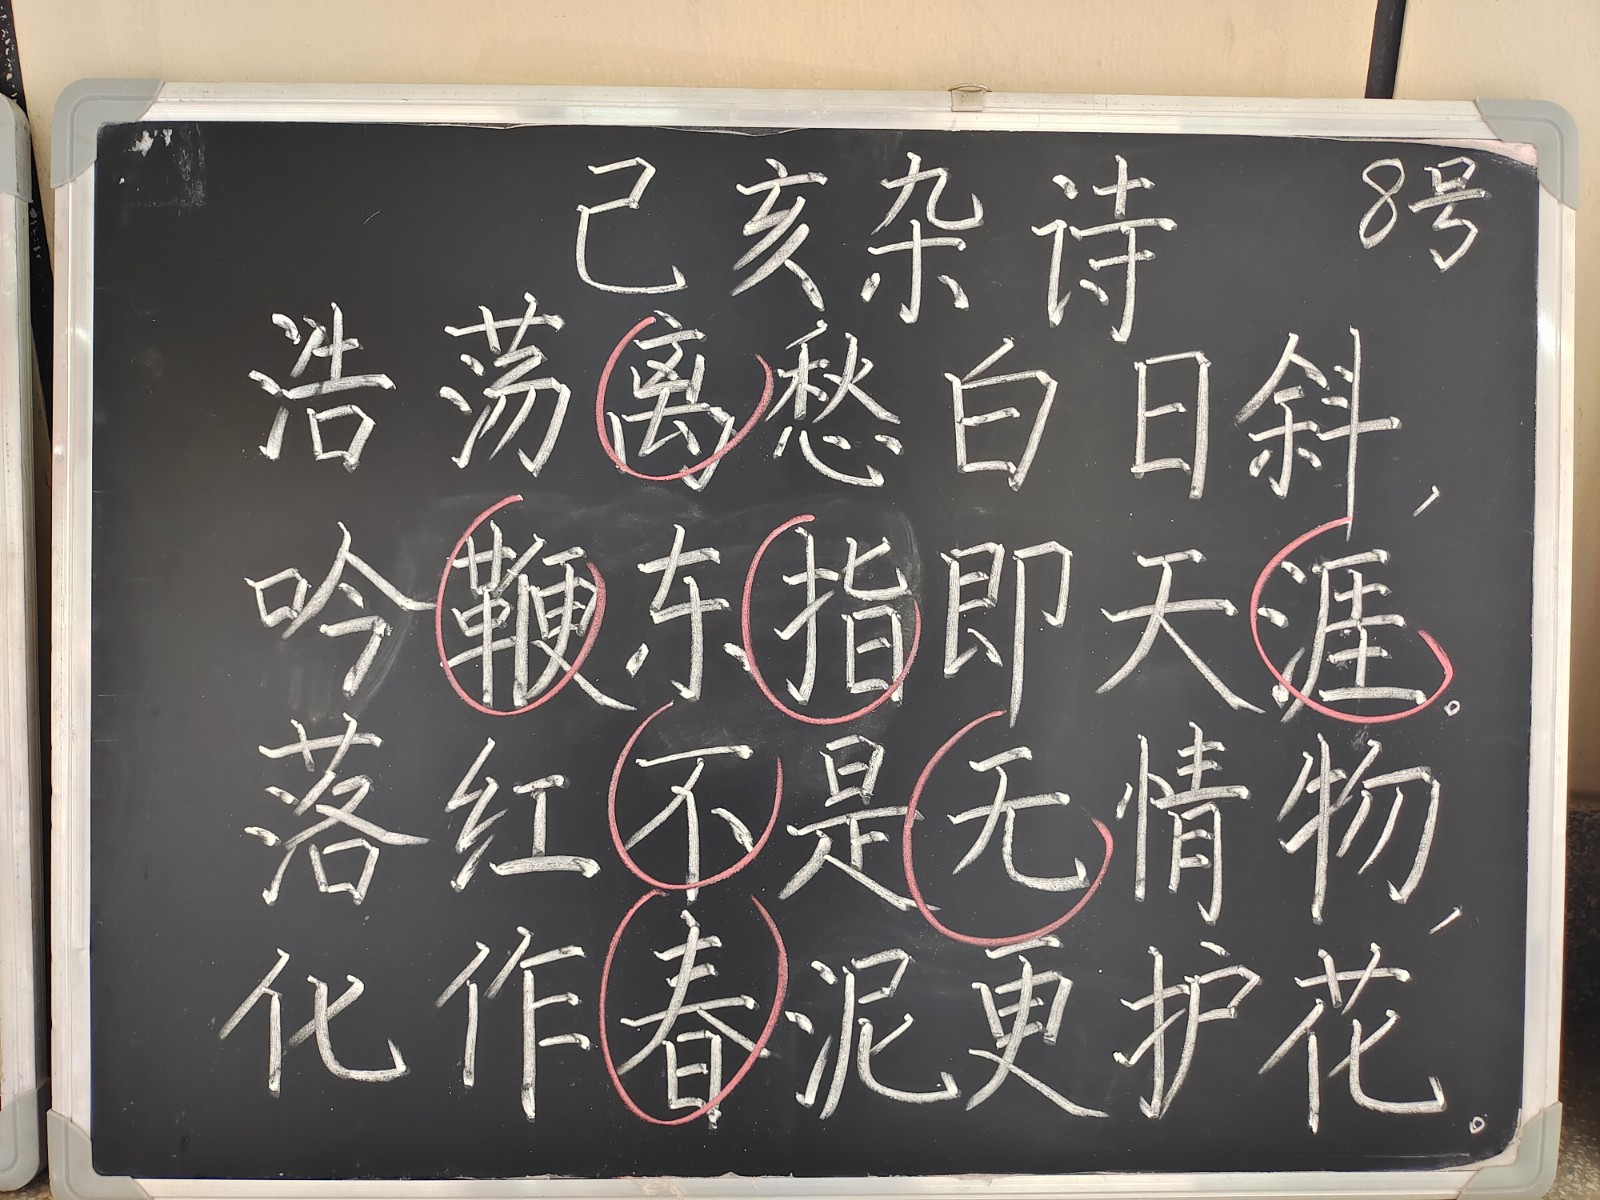 己亥杂诗 8号
浩荡离愁白日斜，
吟鞭东指即天涯。
落红不是无情物，
化作春泥更护花。